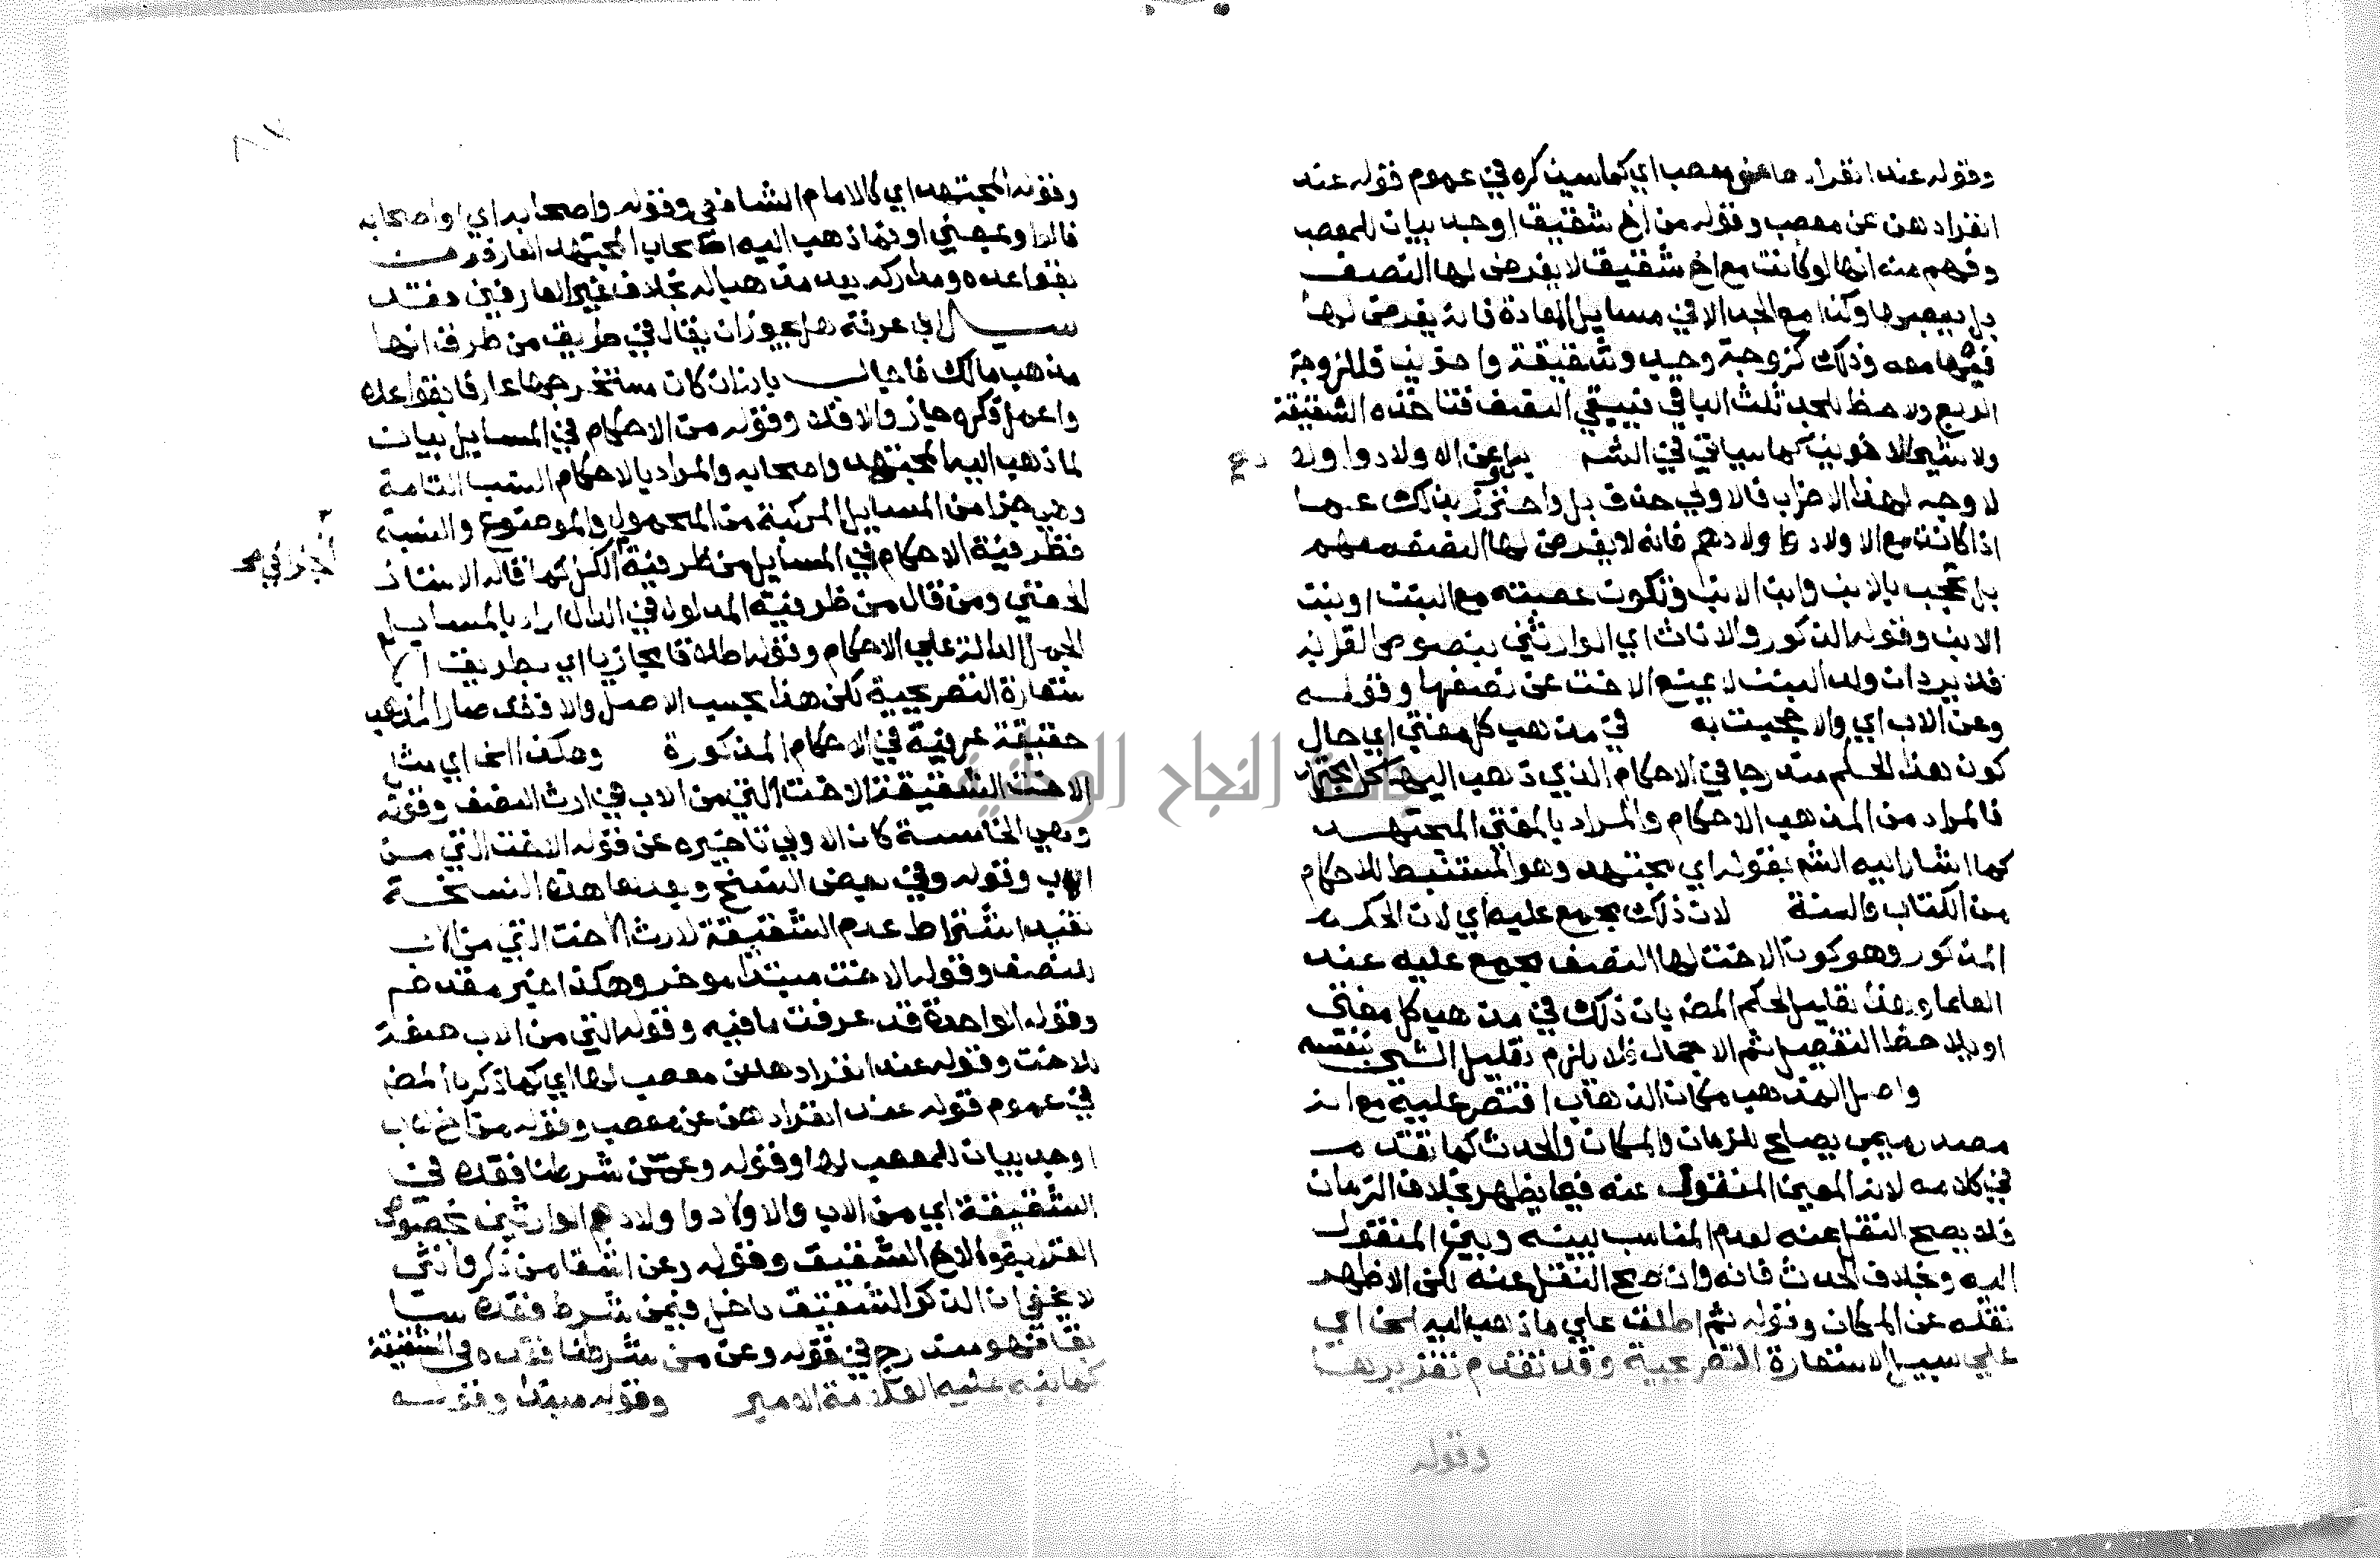 وقوله عند انفرادها عن معصب اي كما سيذكره في عموم قوله عند
انفرادهن عن معصب وقوله من اخ شقيق او جد بيان للمعصب
وفهم منه انها لو كانت مع اخ شقيق لا يفرض لها النصف
بل يعصبها وكذا مع الجد الا في مسايل المعادة فانه يفرض لها
فيها معه وذلك كزوجة وجد وشقيقة واخوين فللزوجة
الربع والاحظ للجد ثلث الباقي فيبقي النصف فتاخذه الشقيقة
ولا شي للاخوين كما سياتي في الشم وعن الاولاد اولاد
لا وجه لهذا الاضراب فالاولي حذف بل واحترز بذلك عما
اذا كانت مع الاولاد او اولادهم فانه لا يفرض لها النصف معهم
بل تحجب بالابن وابن الابن وتكون عصبته مع البنت او بنت
الابن وقوله الذكور والاناث اي الوارثين بنصوص القرانه
فلا يرد ان ولد البنت لا يمنع الاخت عن نصفها وقوله
وعن الاب اي والا حجبت به في مذهب كل مفتي اي حال
كون هذا الحكم مندرجا في الاحكام الذي ذهب اليها كل مجتهد
فالمراد من المذهب الاحكام والمراد بالمفتي المجتهد
كما اشار اليه الشم بقوله اي مجتهد وهو المستنبط للاحكام
من الكتاب والسنة لان ذلك مجمع عليه اي لان الحكم
المذكور وهو كون الاخت لها النصف مجمع عليه عند
العلما وهذا تعليل لحكم المصه بان ذلك في مذهب كل مفتي
او يلاحظ التفصيل ثم الاجمال فلا يلزم تعليل الشي بنفسه
واصل المذهب مكان الذهاب اقتصر عليه مع انه
مصدر ميمي يصلح للزمان والمكان والحدث كما تقدم
في كلامه لانه المعين المنقول عنه فيما يظهر بخلاف الزمان
فلا يصح النقل عنه لعدم المناسب بينه وبين المنقول
اليه وبخلاف الحدث فانه وان صح النقل عنه لكن الاظهر
نقله عن المكان وقوله ثم اطلق علي ما ذهب اليه الخ اي
علي سبيل الاستعارة التصريحية وقد تقدم تقريرها
وقوله
٨٧
وقوله المجتهد اي كالامام الشافعي وقوله واصحابه اي او اصحابه
فالواو بمعني او فما ذهب اليه اصحاب المجتهد العارفون
بقواعده ومداركه يعد مذهبا له بخلاف غير العارفين وقد
سيل ابن عرفة هل يجوز ان يقال في طريق من طرق انها
مذهب مالك فاجاب بانه ان كان مستخرجها عارفا بقواعده
واعمل فكره جاز والا فلا وقوله من الاحكام في المسايل بيان
لما ذهب اليه المجتهد واصحابه والمراد بالاحكام النسب التامة
وهي جزا من المسايل المركبة من المحمول والموضوع والنسبة
فظرفية الاحكام في المسايل من ظرفية الكل كما قاله الاستاذ
الجزء في
الحفني ومن قال من ظرفية المدلول في الدال اراد بالمسايل
الجمل الدالة علي الاحكام وقوله اطلاقا مجازيا اي بطريق الا
ستعارة التصريحية لكن هذا بحسب الاصل والا فقد صار المذهب
حقيقة عرفية في الاحكام المذكورة وهكذا الخ اي مثل
الاخت الشقيقة الاخت التي من الاب في ارث النصف وقوله
وهي الخامسة كان الاولي تاخيره عن قوله الاخت التي من
الاب وقوله وفي بعض النسخ وبعدها هذه النسخة
تفيد اشتراط عدم الشقيقة لارث الاخت التي من الاب
النصف وقوله الاخت مبتدا موخر وهكذا خبر مقدم
وقوله الواحدة قد عرفت ما فيه وقوله التي من الاب صفة
للاخت وقوله عند انفرادها عن معصب لها اي كما ذكره المصه
في عموم قوله عند انفرادهن عن معصب وقوله من اخ لاب
او جد بيان للمعصب لها وقوله وعمن شرطنا فقده في
الشقيقة اي من الاب والاولاد واولادهم الوارثين بخصوص
القرابة والاخ الشقيق وقوله وعن اشقا من ذكر وانثي
لا يخفي ان الذكر الشقيق داخل فيمن شرط فقده سا
بقا فهو مندرج في قوله وعن من شرطنا فقده في الشقيقة
كما نبه عليه العلامة الامير وقوله مبتدا وقوله